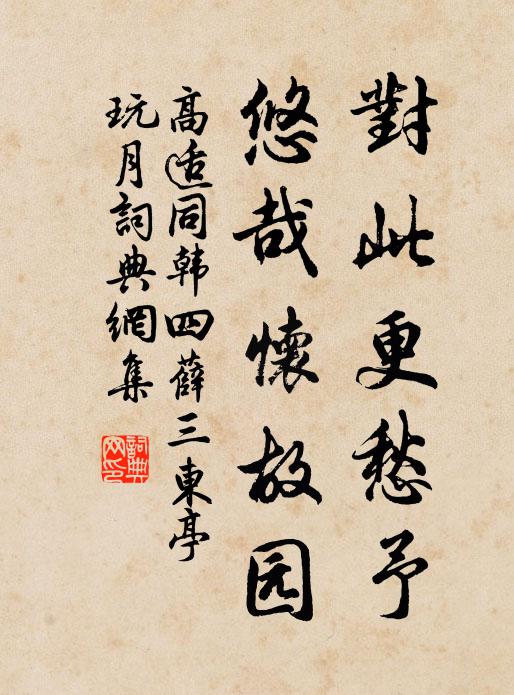 對此更愁予
悠哉懷故园
高适同韩四薛三東亭
玩月詞典網集
詞典网印